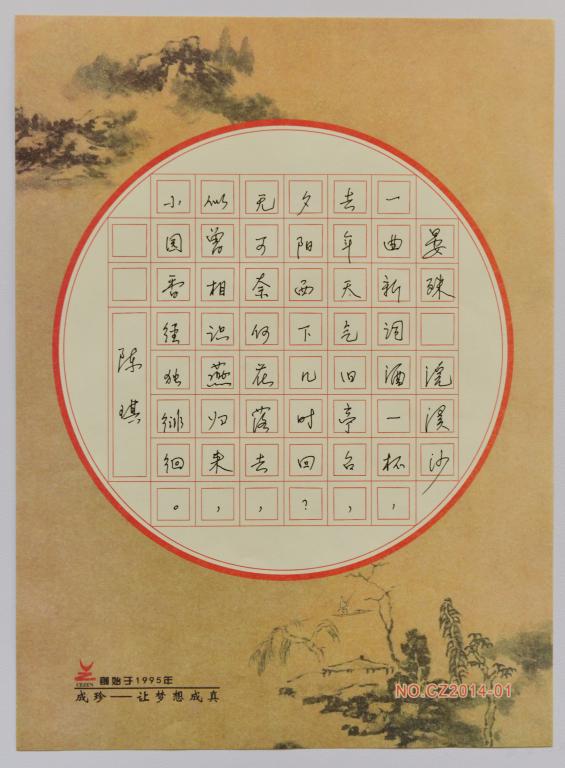 晏殊 浣溪沙
一曲新词酒一杯，
去年天气旧亭台，
夕阳西下几时回？
无可奈何花落去，
似曾相识燕归来，
小园香径独徘徊。
陈琪
CEZEN
创始于1995年
成珍——让梦想成真
NO.CZ2014-01